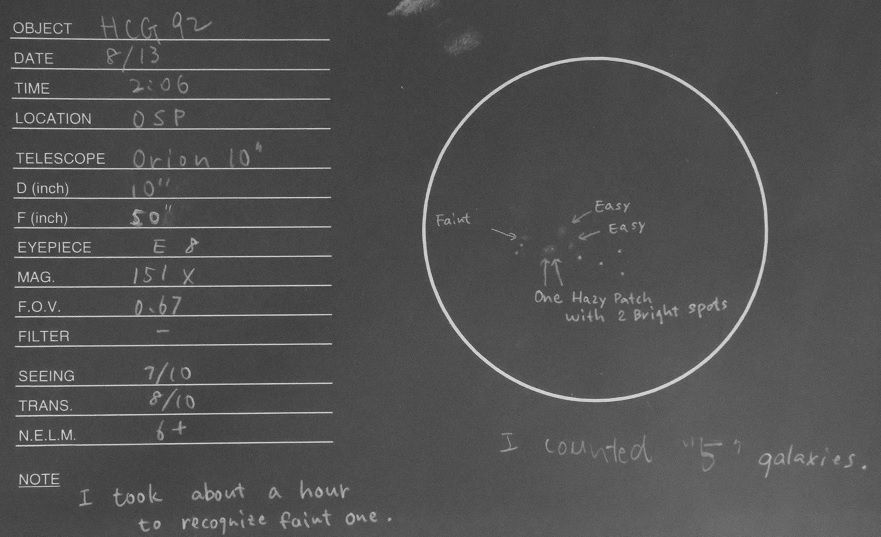 OBJECT HCG 92
DATE 8/13
TIME 2:06
LOCATION OSP
TELESCOPE Orion 10"
D (inch) 10"
F (inch) 50"
EYEPIECE E 8
MAG. 151 X
F.O.V. 0.67
FILTER –
SEEING 7/10
TRANS. 8/10
N.E.L.M. 6+
NOTE I took about a hour
to recognize faint one.
Easy
Faint
Easy
One Hazy Patch
with 2 Bright spots
I counted "5" galaxies.